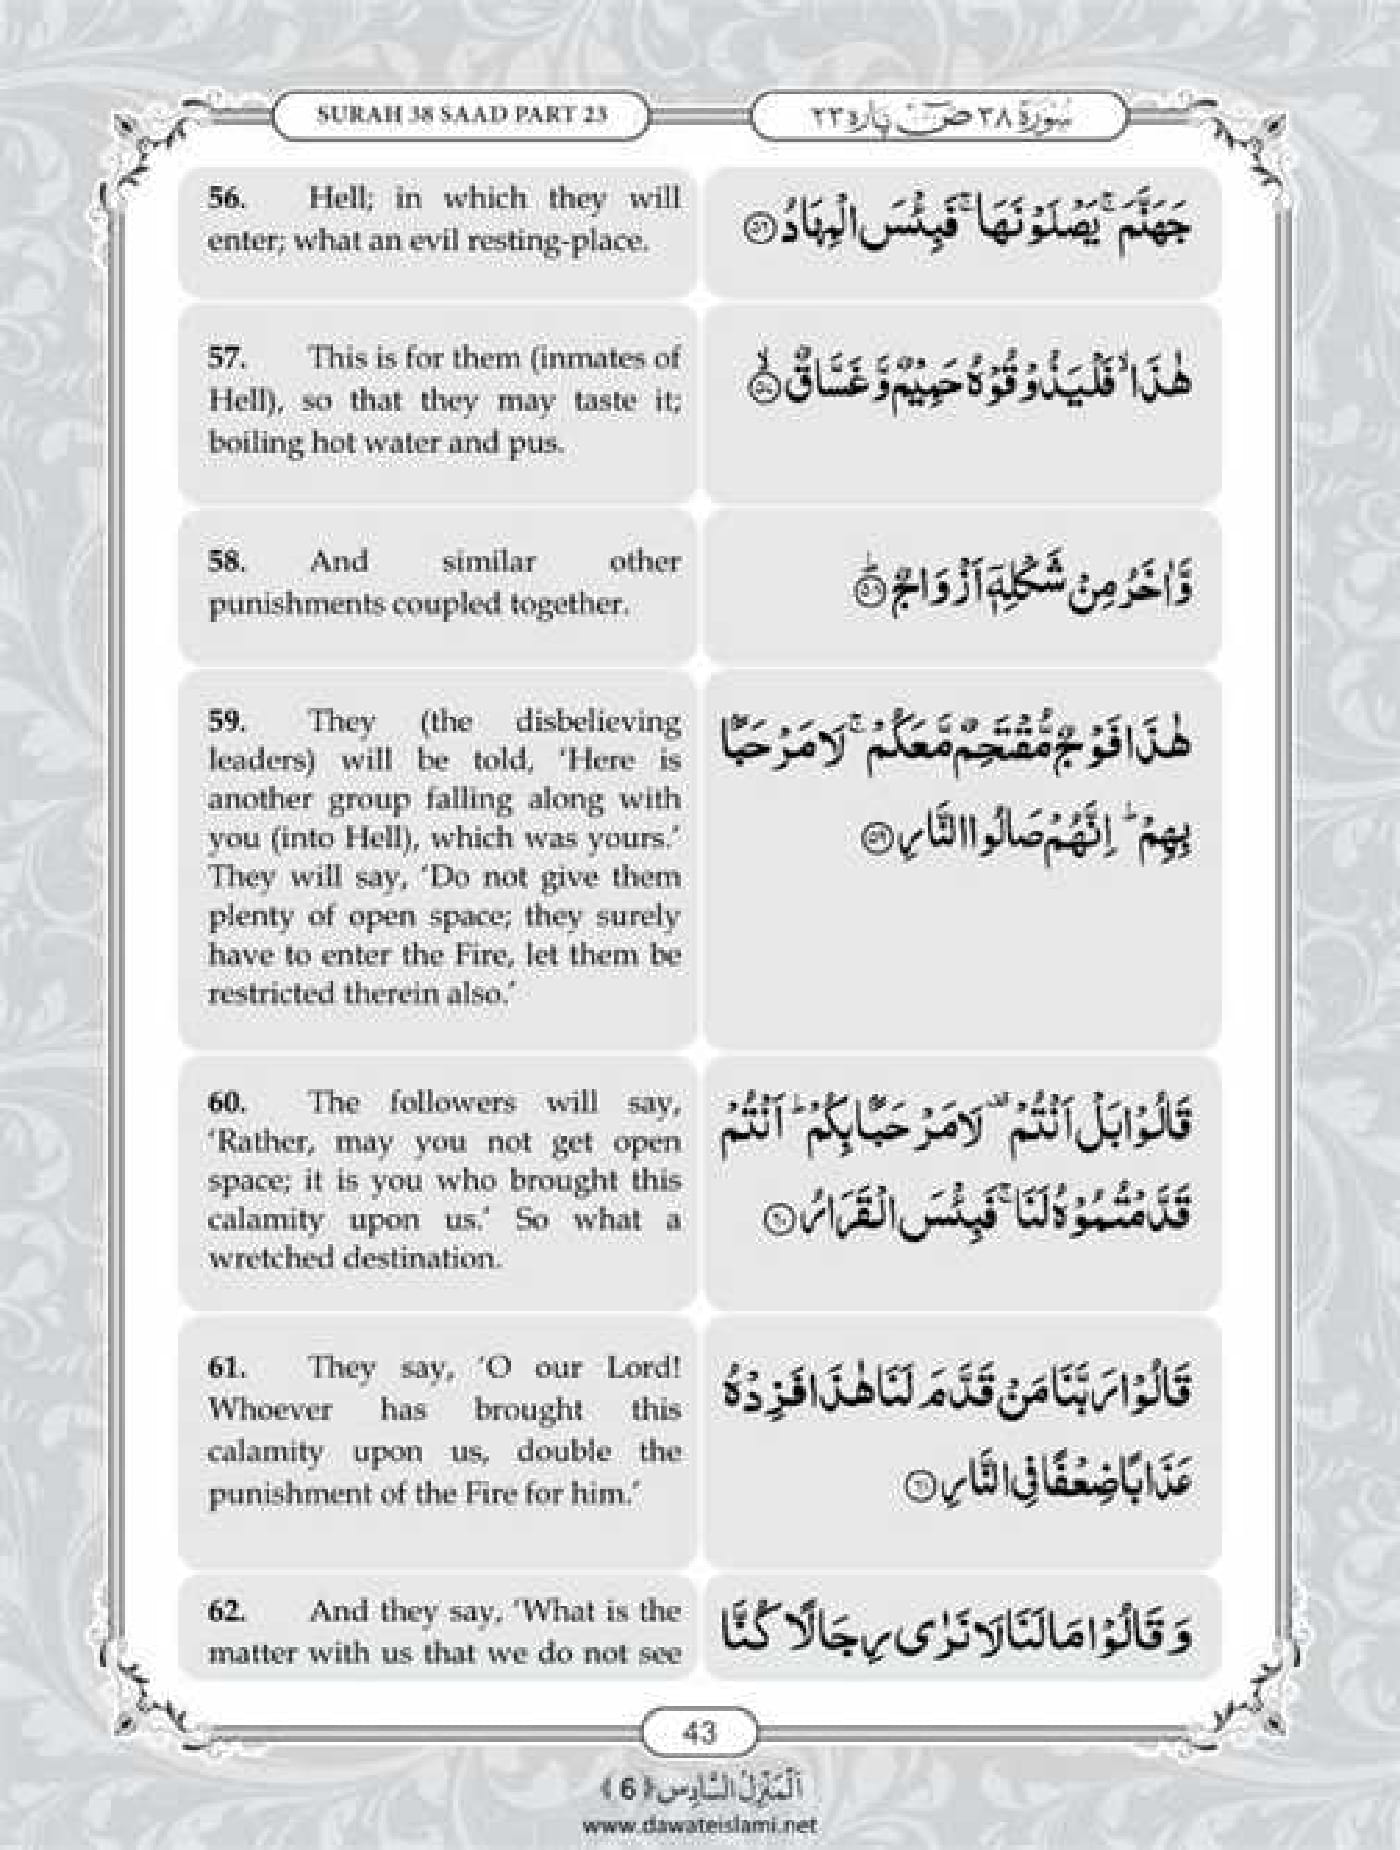 SURAH 38 SAAD PART 23
سُوْرَةُ ٣٨ صٓ پاره ٢٣
56. Hell; in which they will
enter; what an evil resting-place.
جَهَنَّمَ ۚ يَصْلَوْنَهَا ۚ فَبِئْسَ الْمِهَادُ ﴿٥٦﴾
57. This is for them (inmates of
Hell), so that they may taste it;
boiling hot water and pus.
هٰذَا ۙ فَلْيَذُوْقُوْهُ حَمِيْمٌ وَّ غَسَّاقٌ ﴿٥٧﴾ ۙ
58. And similar other
punishments coupled together.
وَّ اٰخَرُ مِنْ شَكْلِهٖۤ اَزْوَاجٌ ﴿٥٨﴾ ؕ
59. They (the disbelieving
leaders) will be told, ‘Here is
another group falling along with
you (into Hell), which was yours.’
They will say, ‘Do not give them
plenty of open space; they surely
have to enter the Fire, let them be
restricted therein also.’
هٰذَا فَوْجٌ مُّقْتَحِمٌ مَّعَكُمْ ۚ لَا مَرْحَبًۢا
بِهِمْ ؕ اِنَّهُمْ صَالُوا النَّارِ ﴿٥٩﴾
60. The followers will say,
‘Rather, may you not get open
space; it is you who brought this
calamity upon us.’ So what a
wretched destination.
قَالُوْا بَلْ اَنْتُمْ ۫ لَا مَرْحَبًۢا بِكُمْ ؕ اَنْتُمْ
قَدَّمْتُمُوْهُ لَنَا ۚ فَبِئْسَ الْقَرَارُ ﴿٦٠﴾
61. They say, ‘O our Lord!
Whoever has brought this
calamity upon us, double the
punishment of the Fire for him.’
قَالُوْا رَبَّنَا مَنْ قَدَّمَ لَنَا هٰذَا فَزِدْهُ
عَذَابًا ضِعْفًا فِي النَّارِ ﴿٦١﴾
62. And they say, ‘What is the
matter with us that we do not see
وَ قَالُوْا مَا لَنَا لَا نَرٰى رِجَالًا كُنَّا
43
اَلْمَنْزِلُ السَّادِس ﴿6﴾
www.dawateislami.net